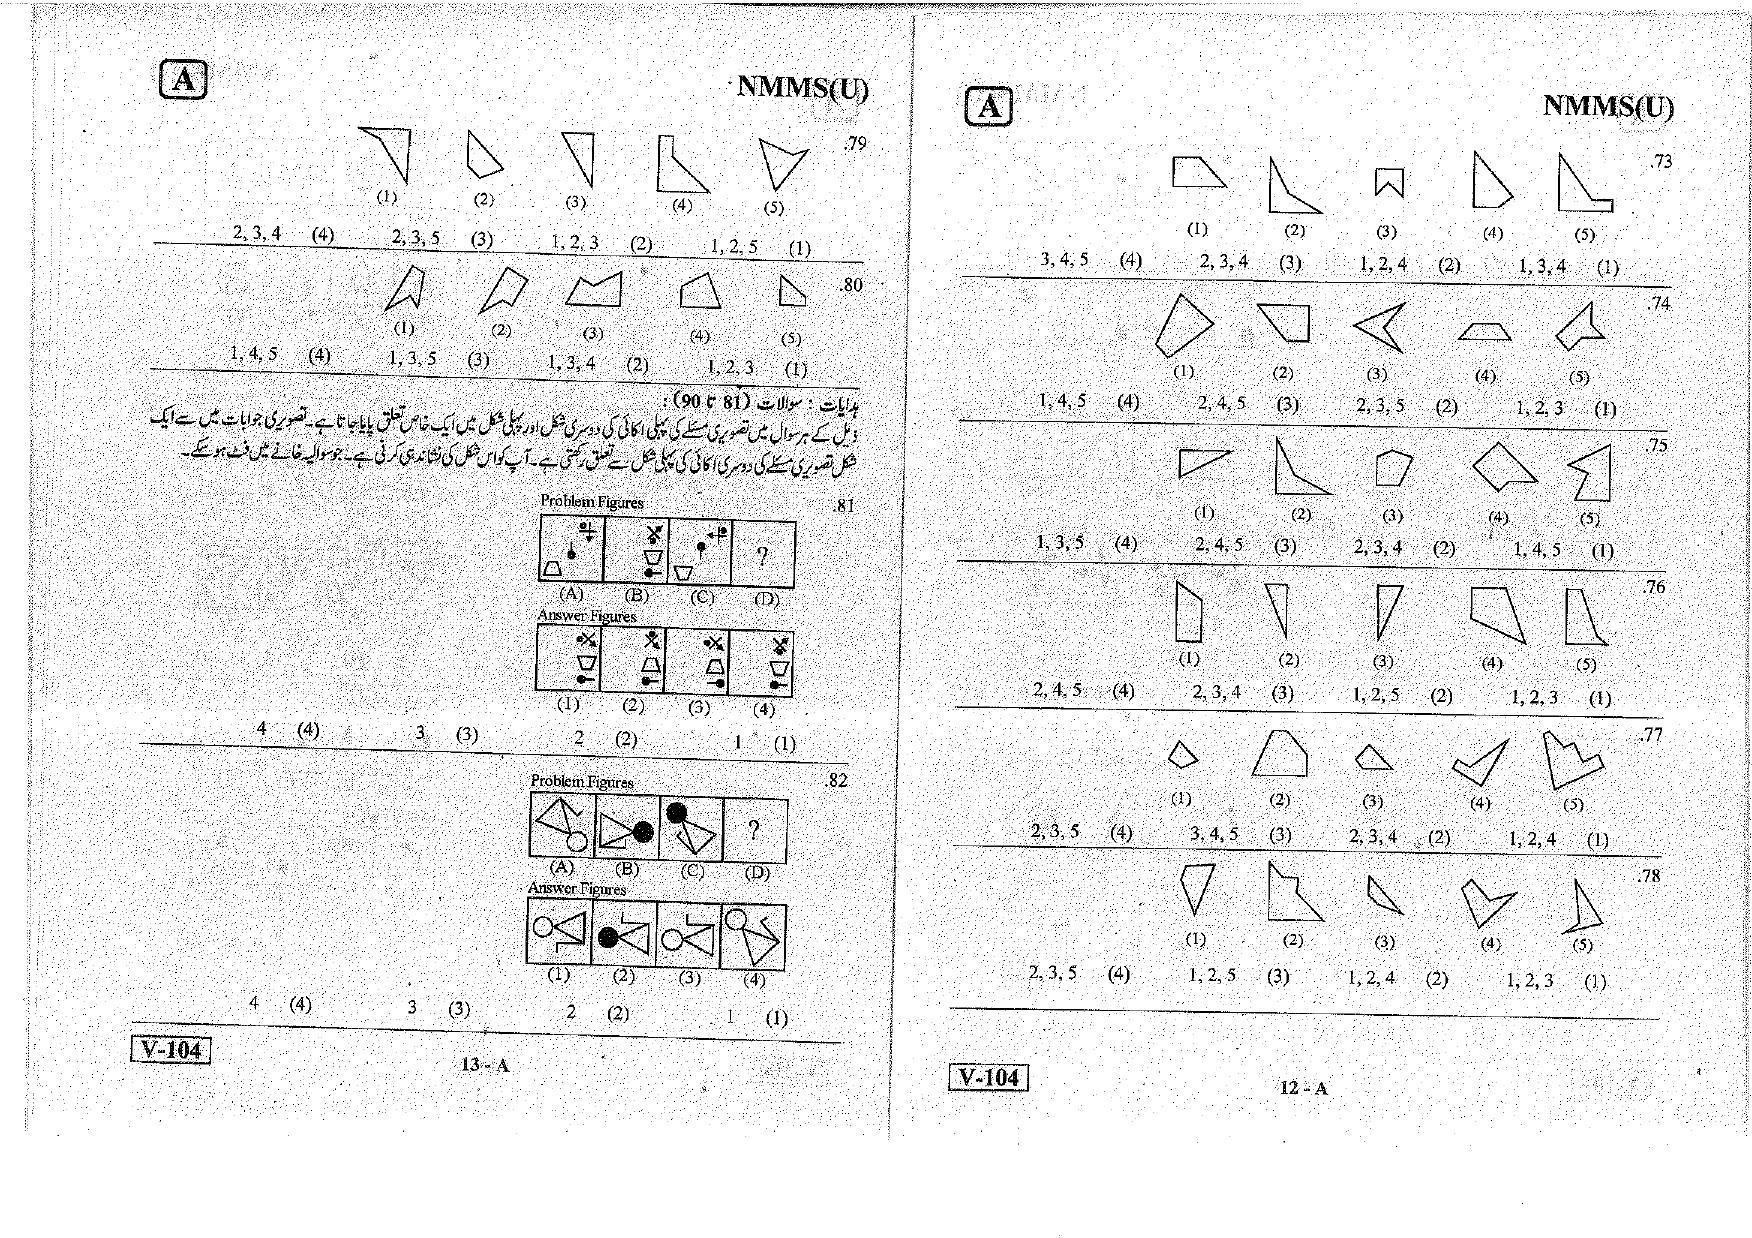 A NMMS(U)
.73
(1) (2) (3) (4) (5)
3, 4, 5 (4) 2, 3, 4 (3) 1, 2, 4 (2) 1, 3, 4 (1)
.74
(1) (2) (3) (4) (5)
1, 4, 5 (4) 2, 4, 5 (3) 2, 3, 5 (2) 1, 2, 3 (1)
.75
(1) (2) (3) (4) (5)
1, 3, 5 (4) 2, 4, 5 (3) 2, 3, 4 (2) 1, 4, 5 (1)
.76
(1) (2) (3) (4) (5)
2, 4, 5 (4) 2, 3, 4 (3) 1, 2, 5 (2) 1, 2, 3 (1)
.77
(1) (2) (3) (4) (5)
2, 3, 5 (4) 3, 4, 5 (3) 2, 3, 4 (2) 1, 2, 4 (1)
.78
(1) (2) (3) (4) (5)
2, 3, 5 (4) 1, 2, 5 (3) 1, 2, 4 (2) 1, 2, 3 (1)
V-104 12 - A
A NMMS(U)
.79
(1) (2) (3) (4) (5)
2, 3, 4 (4) 2, 3, 5 (3) 1, 2, 3 (2) 1, 2, 5 (1)
.80
(1) (2) (3) (4) (5)
1, 4, 5 (4) 1, 3, 5 (3) 1, 3, 4 (2) 1, 2, 3 (1)
ہدایات : سوالات (81 تا 90) :
ذیل کے ہر سوال میں تصویری مسئلے کی پہلی اکائی کی دوسری شکل اور پہلی شکل میں ایک خاص تعلق پایا جاتا ہے۔ تصویری جوابات میں سے ایک
شکل تصویری مسئلے کی دوسری اکائی کی پہلی شکل سے تعلق رکھتی ہے۔ آپ کو اس شکل کی نشاندہی کرنی ہے۔ جو سوالیہ خانے میں فٹ ہو سکے۔
.81
Problem Figures
?
(A) (B) (C) (D)
Answer Figures
(1) (2) (3) (4)
4 (4) 3 (3) 2 (2) 1 (1)
.82
Problem Figures
?
(A) (B) (C) (D)
Answer Figures
(1) (2) (3) (4)
4 (4) 3 (3) 2 (2) 1 (1)
V-104 13 - A